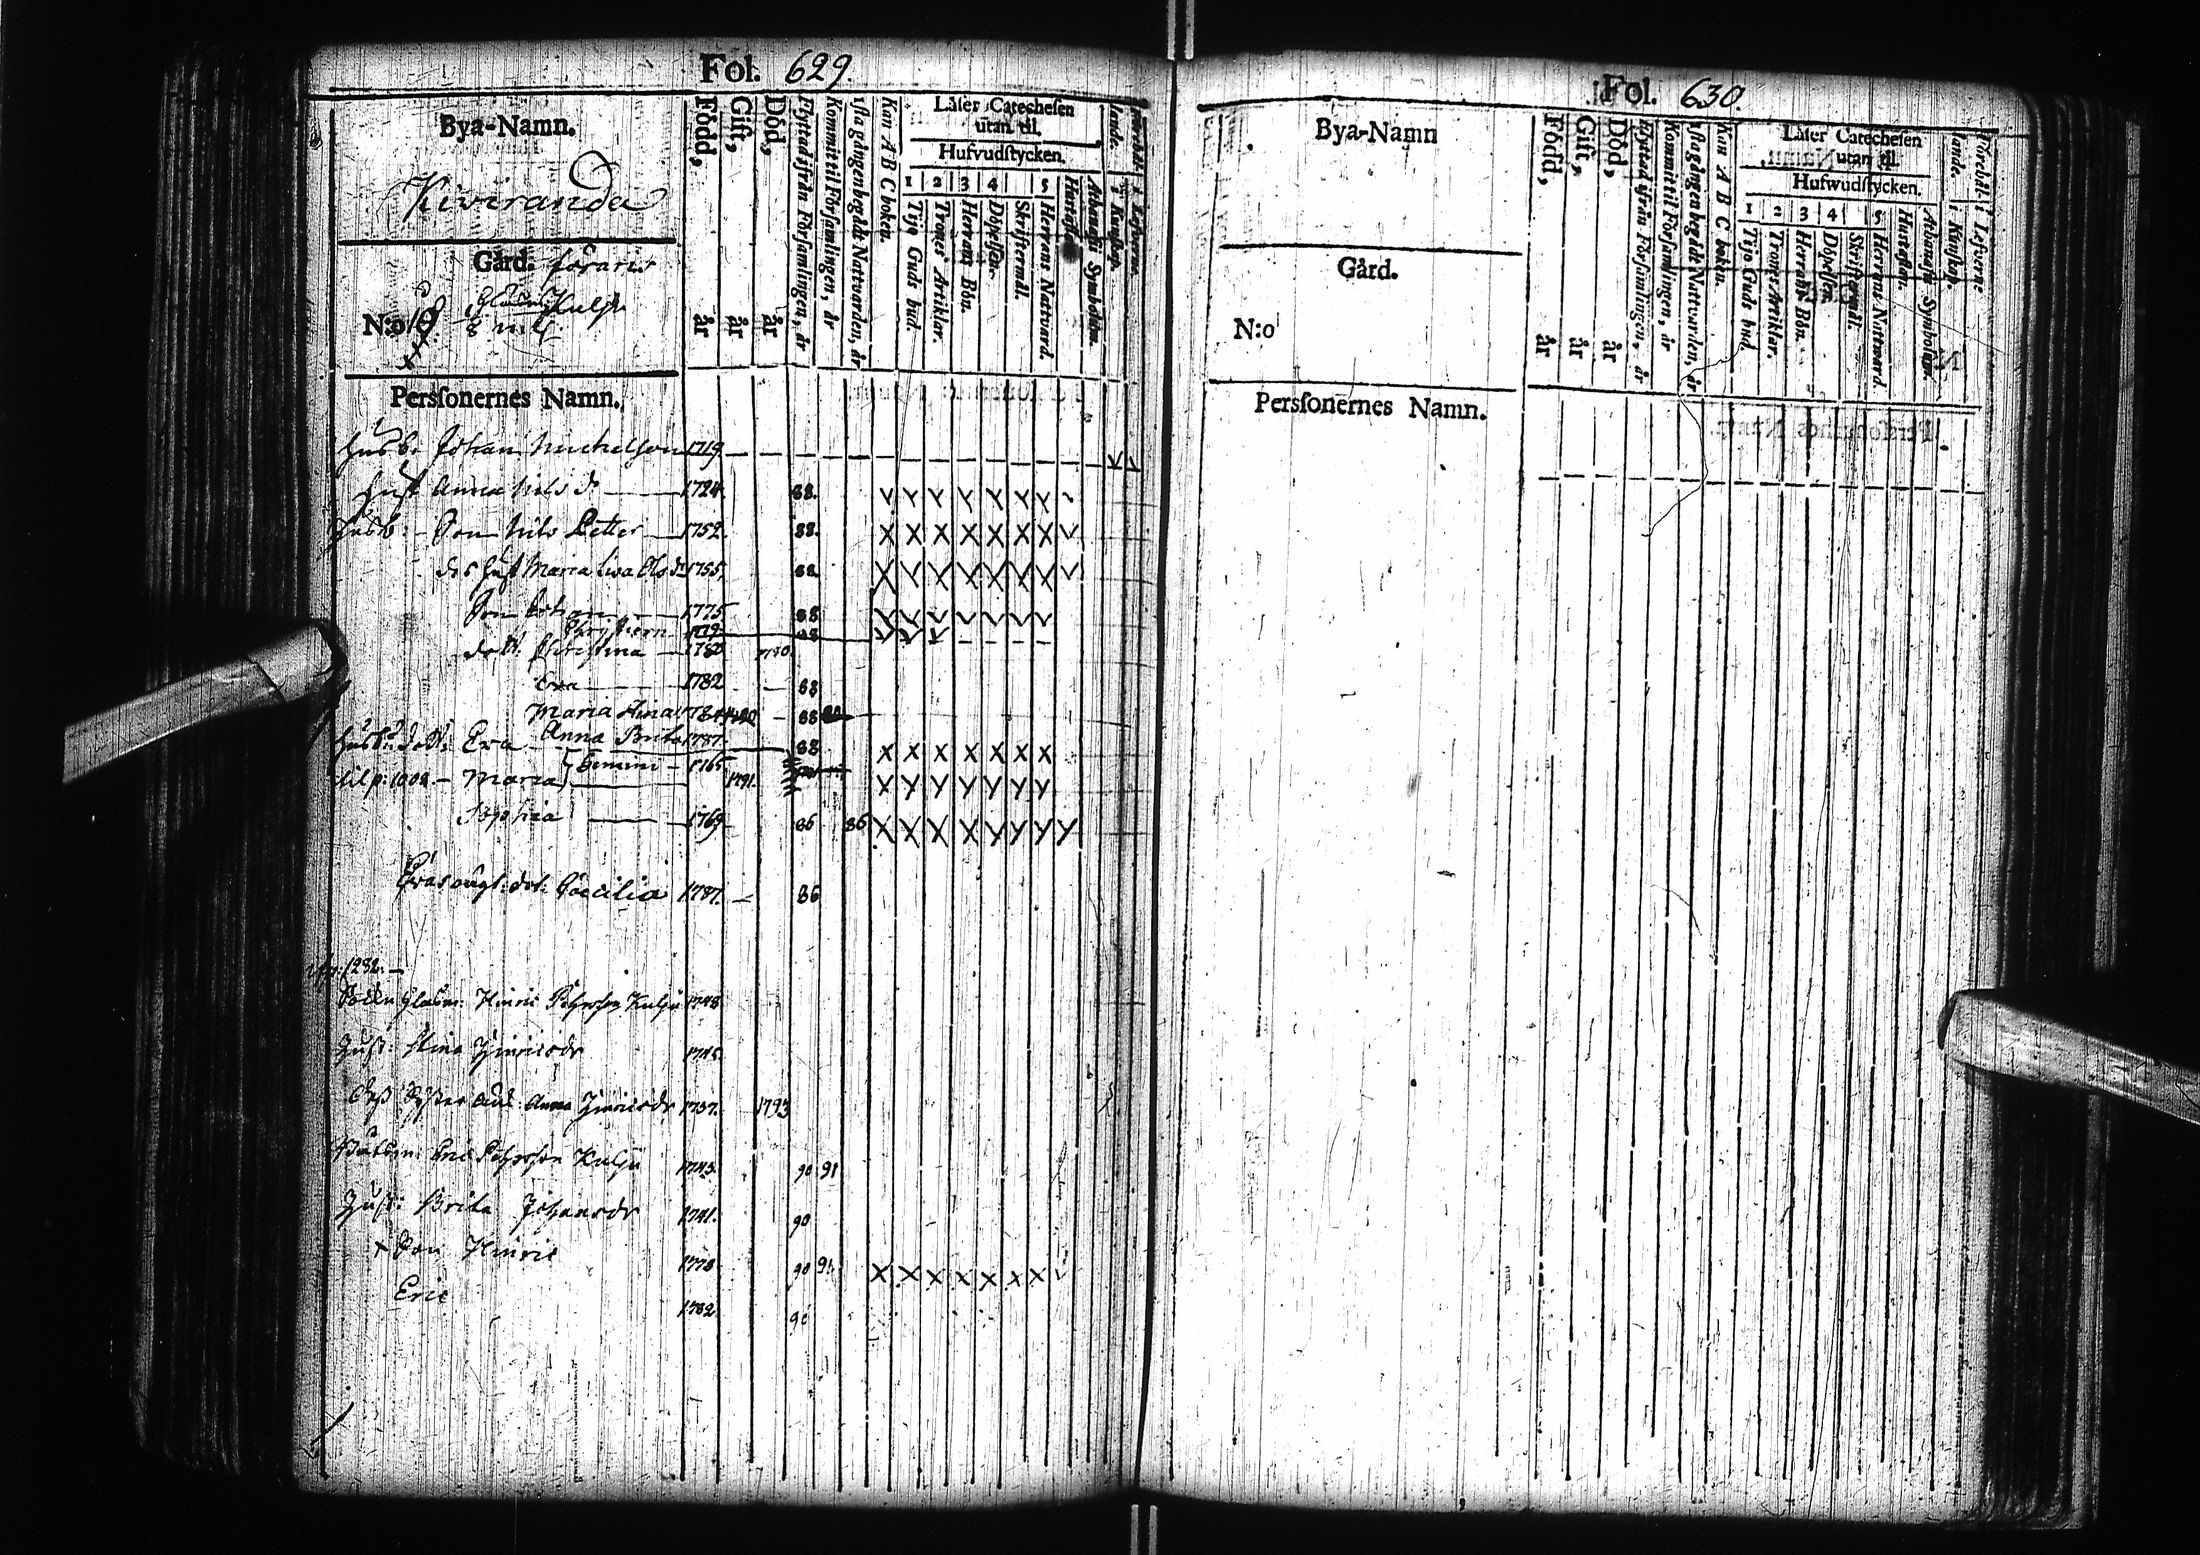 Fol. 629.
Bya-Namn.
Kiviranda
Gård.
N:o 10
Kulju
Född, år
Gift, år
Död, år
Flyttad ifrån Församlingen, år
Kommit til Församlingen, år
1sta gången begådt Nattvarden, år
Kan A B C boken.
Läser Catechesen
utan til.
Hufvudstycken.
1 2 3 4 5
Tijo Guds bud.
Trones Artiklar.
Herrans Bön.
Döpelsen.
Skriftermål.
Herrans Nattvard.
Hustaflan.
Athanasii Symbolum.
Personernes Namn.
Husb: Johan Michelson 1719
Hust Anna Nils d 1724 88.
Husb: Son Nils Petter 1752. 88.
des Hust Maria Lisa Ols d 1755. 88
Son Johan 1775 88
1779
dott: Christina 1780 1780.
Eva 1782 88
Maria Stina 88
Anna Brita 1787. 88
Husb: dott: Eva
Gemini 1765
til p: 1002. Maria 1791.
Sophia 1769 86 86
dot: Cæcilia 1787. 86
1282.
Hinric Pehrsson Kulju 1748
Hust: Stina Hinricsdr 1745.
Syster Anna Hinricsdr 1737. 1793
Eric Pehrsson Kulju 1743. 90 91
Hust: Brita Johansdr 1741. 90
x Son Hinric 1778. 90 91
Eric 1782. 90
Fol. 630.
Bya-Namn
Gård.
N:o
Född, år
Gift, år
Död, år
Flyttad ifrån Församlingen, år
Kommit til Församlingen, år
1sta gången begådt Nattvarden, år
Kan A B C boken.
Läser Catechesen
utan til.
Hufwudstycken.
1 2 3 4 5
Tijo Guds bud.
Trones Artiklar.
Herrans Bön.
Döpelsen.
Skriftermål.
Herrans Nattward.
Hustaflan.
Athanasii Symbolum.
Personernes Namn.